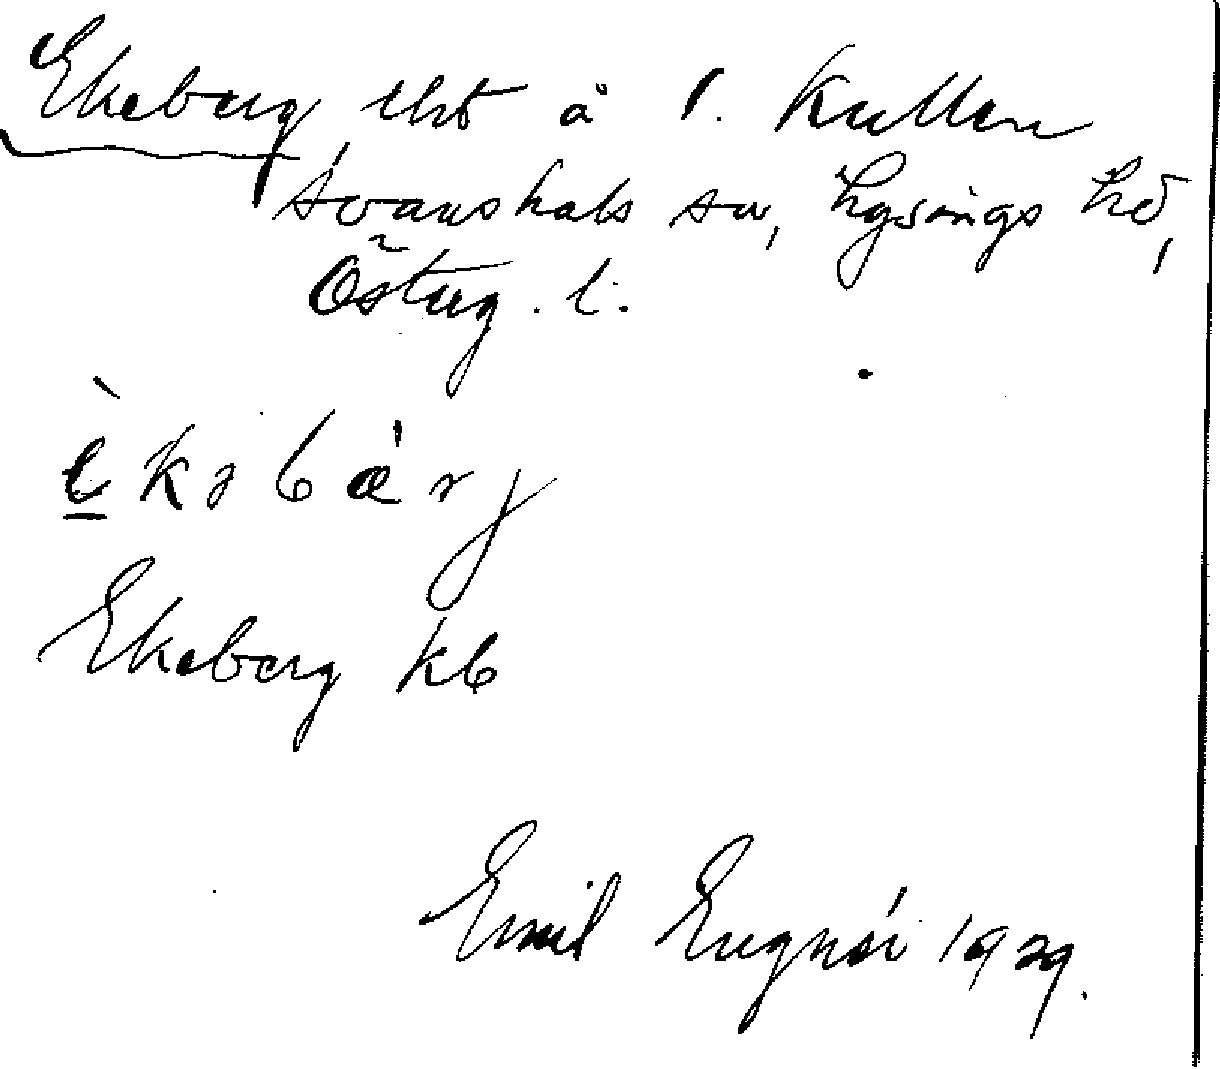 Ekeberg, lht å 1. Kullen
Svanshals sn, Lysings hd,
Österg. l.
è̱kəbæ̀rj
Ekeberg kb
Emil Engnér 1929.